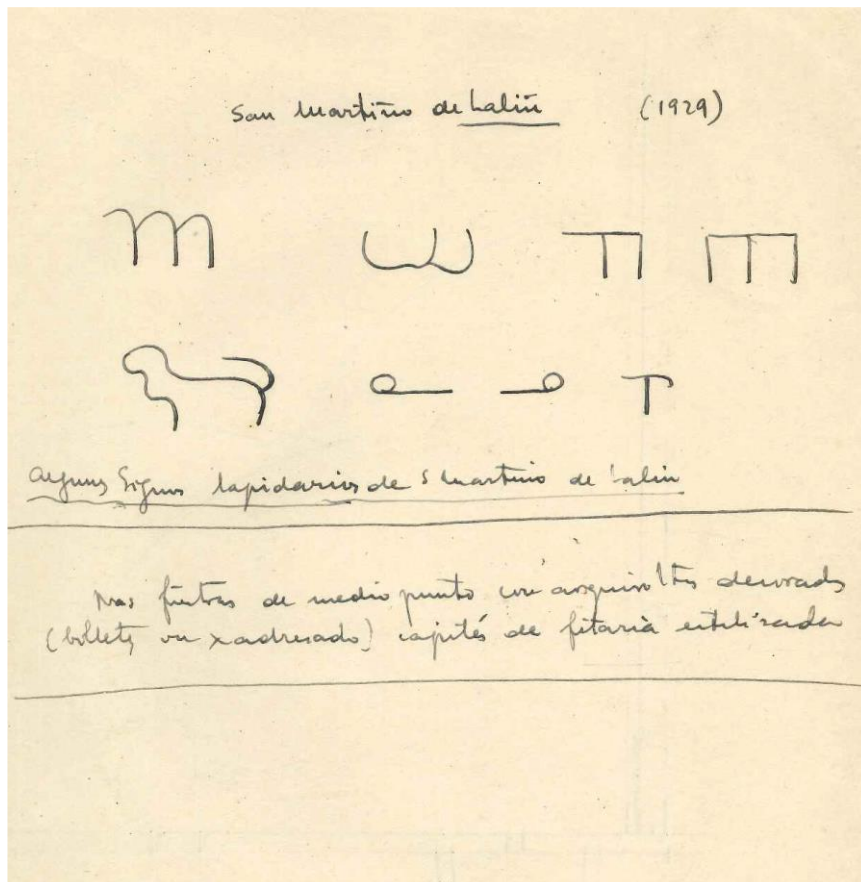 San Martiño de Laliñ (1929)
Algunos Signos lapidarios de S Martiño de Lalin
Nas fiestras de medio punto con arquivoltas decoradas
(billets ou xadresado) capités de fitaria estilisada